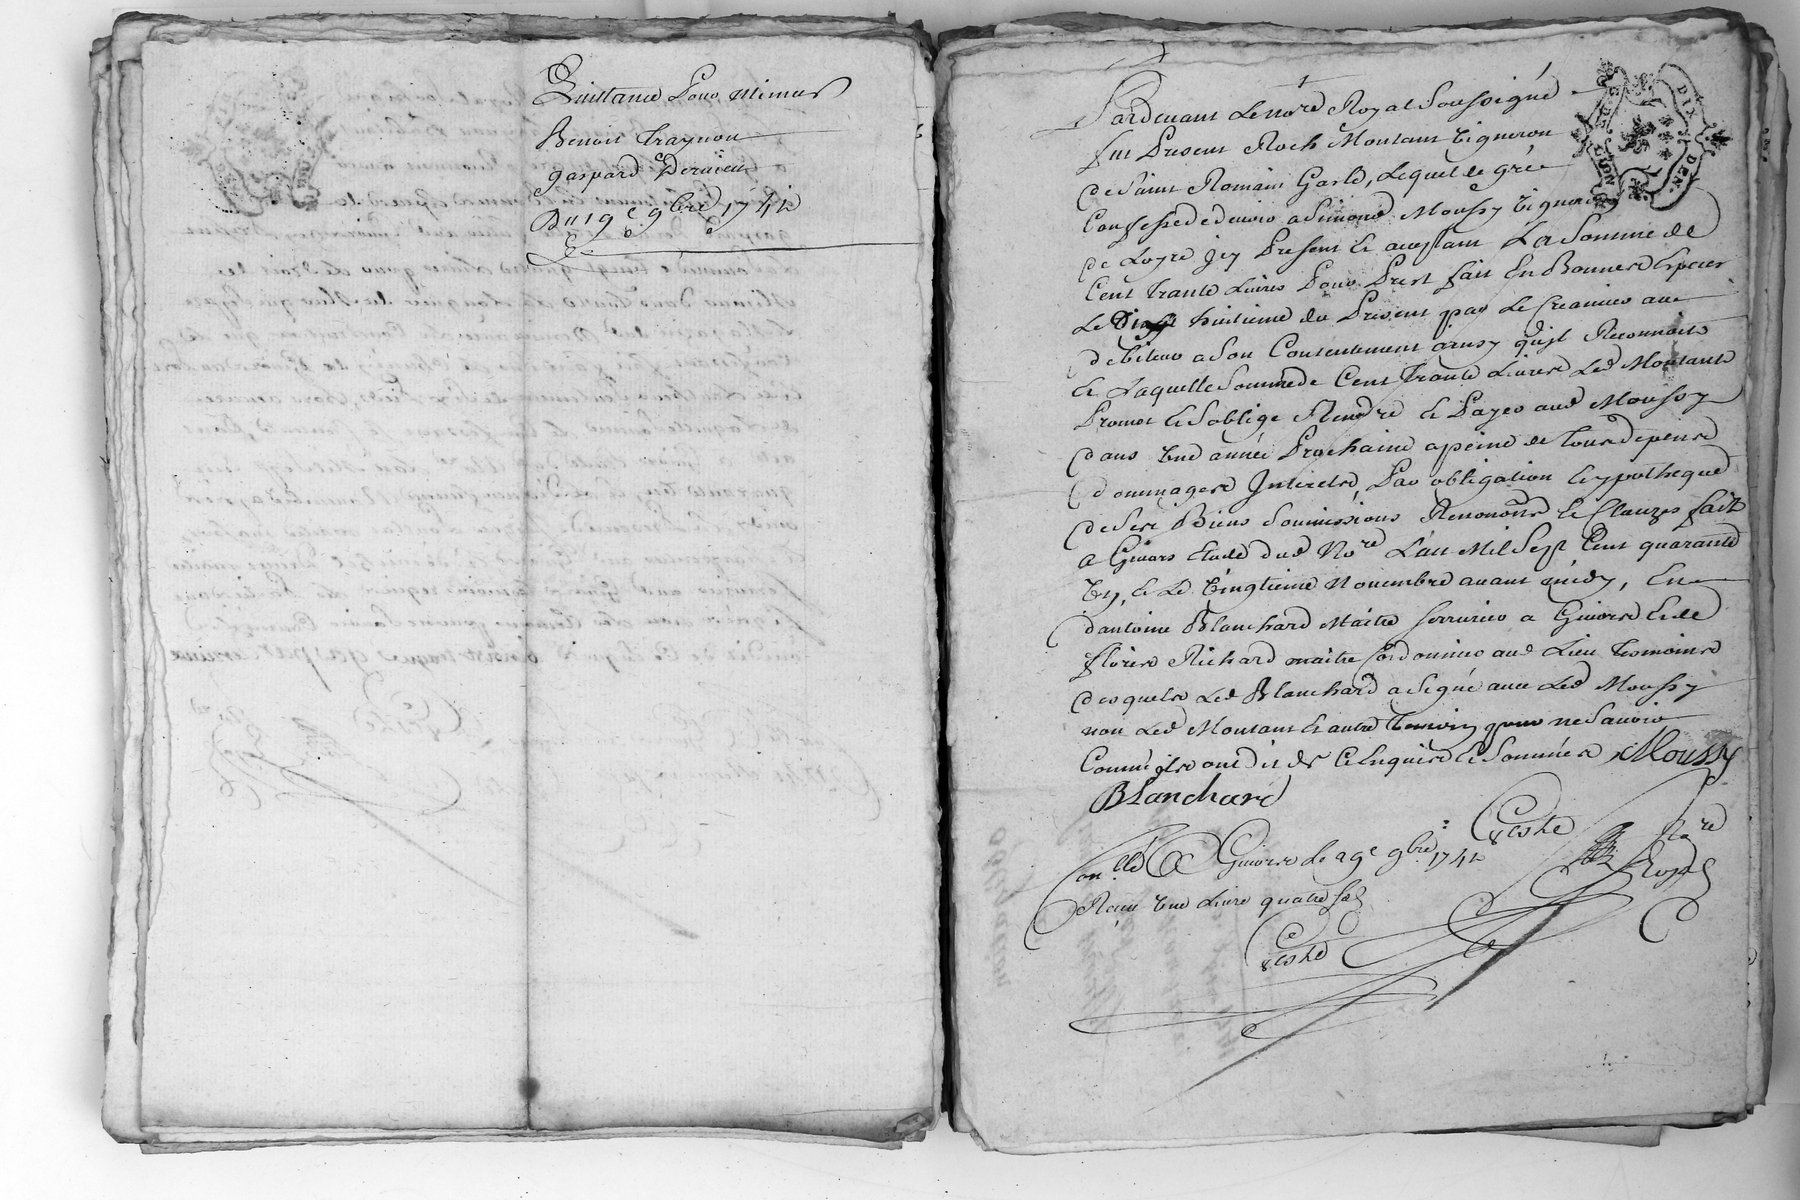 Quittance Pour mimes
Benoit Traynon
gaspard Deraieux
Du 19e 9bre 1741
Pardevant Le nore Royal Soussigné
fut Present Roch Montant Vigneron
de Saint Romain Gasle, Lequel de gré
Confesse devoir a Simond Moussy Vigneron
de Loyre jcy Present et aceptant La Somme de
Cent trante Livres Pour Prest fait En Bonnes Especes
Le huitieme du Present par Le Creancier aud
debiteur a Son Contentement ainsy quil Reconnoit
Et Laquelle Somme de Cent Trante Livres Led Montant
Promet Et Soblige Rendre Et Payer aud Moussy
dans Une année Prochaine apeine de Tous depens
dommages Interets, Par obligation Et ypotheque
de Ses Biens Soumissions Renonons Et Clauzes fait
a Givors Etude dud Nore L'an Mil Sept Cent quarante
Un, Et Le Vingtieme Novembre avant midy, En
d'antoine Blanchard Maitre Serrurier a Givors Et de
floris Richard maitre Cordonnier aud Lieu Temoins
desquels Led Blanchard a Signé avec Led Moussy
non Led Montant Et autre Temoin pour ne Scavoir
Comme ils ont dit de Ce Enquis Et Sommés Moussy
Blanchard
Coste
Nore
Royal
Conllé A Givors Le 29e 9bre 1741
Recu Une Livre quatre sols
Coste